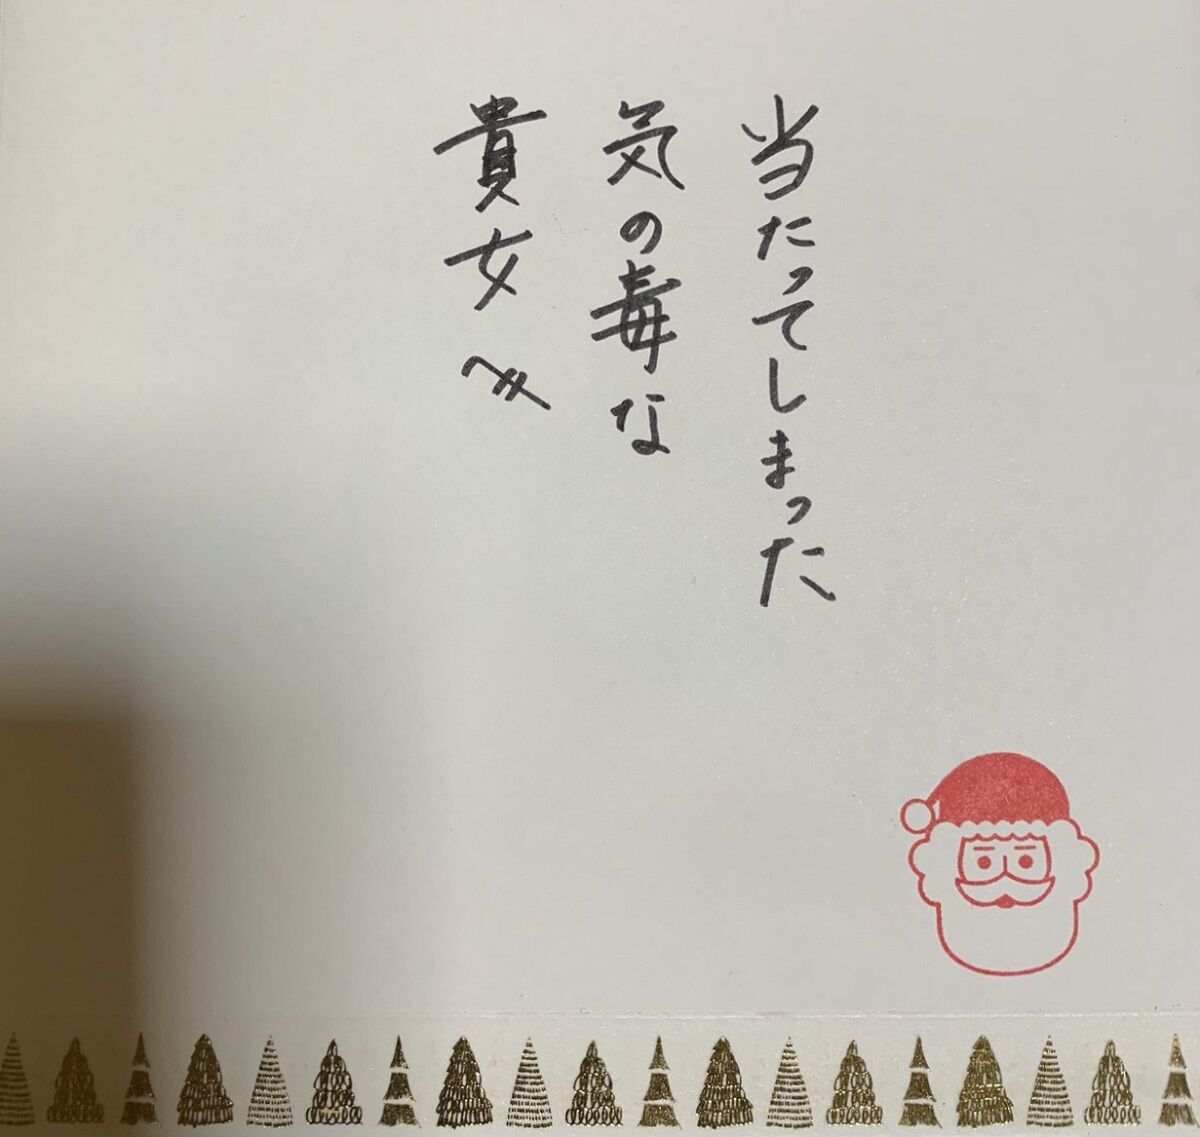 当たってしまった
気の毒な
貴女へ